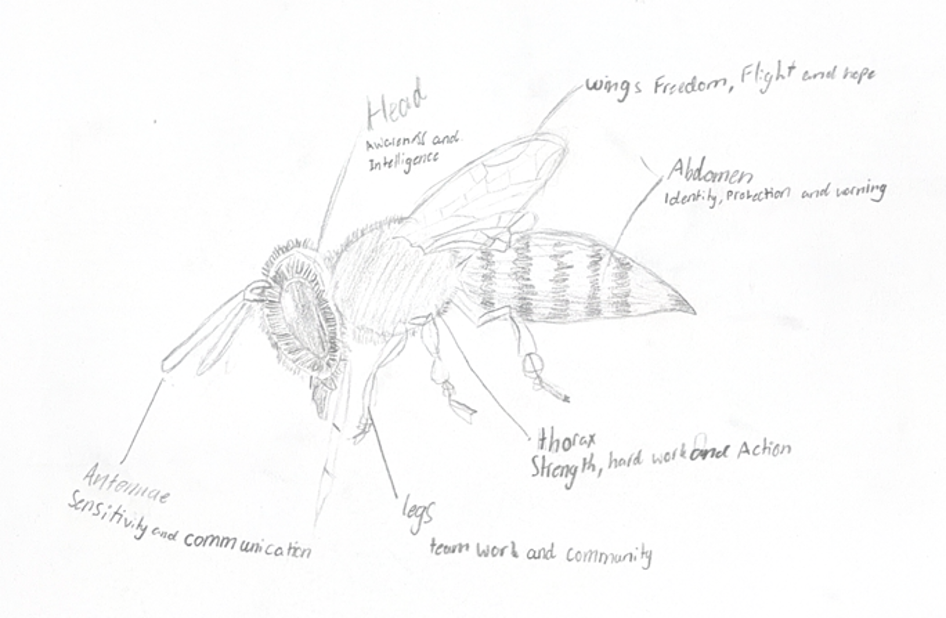 Head
Awareness and
Intelligence
wings Freedom, Flight and hope
Abdomen
Identity, Protection and warning
thorax
Strength, hard work and Action
Antennae
Sensitivity and communication
legs
team work and community